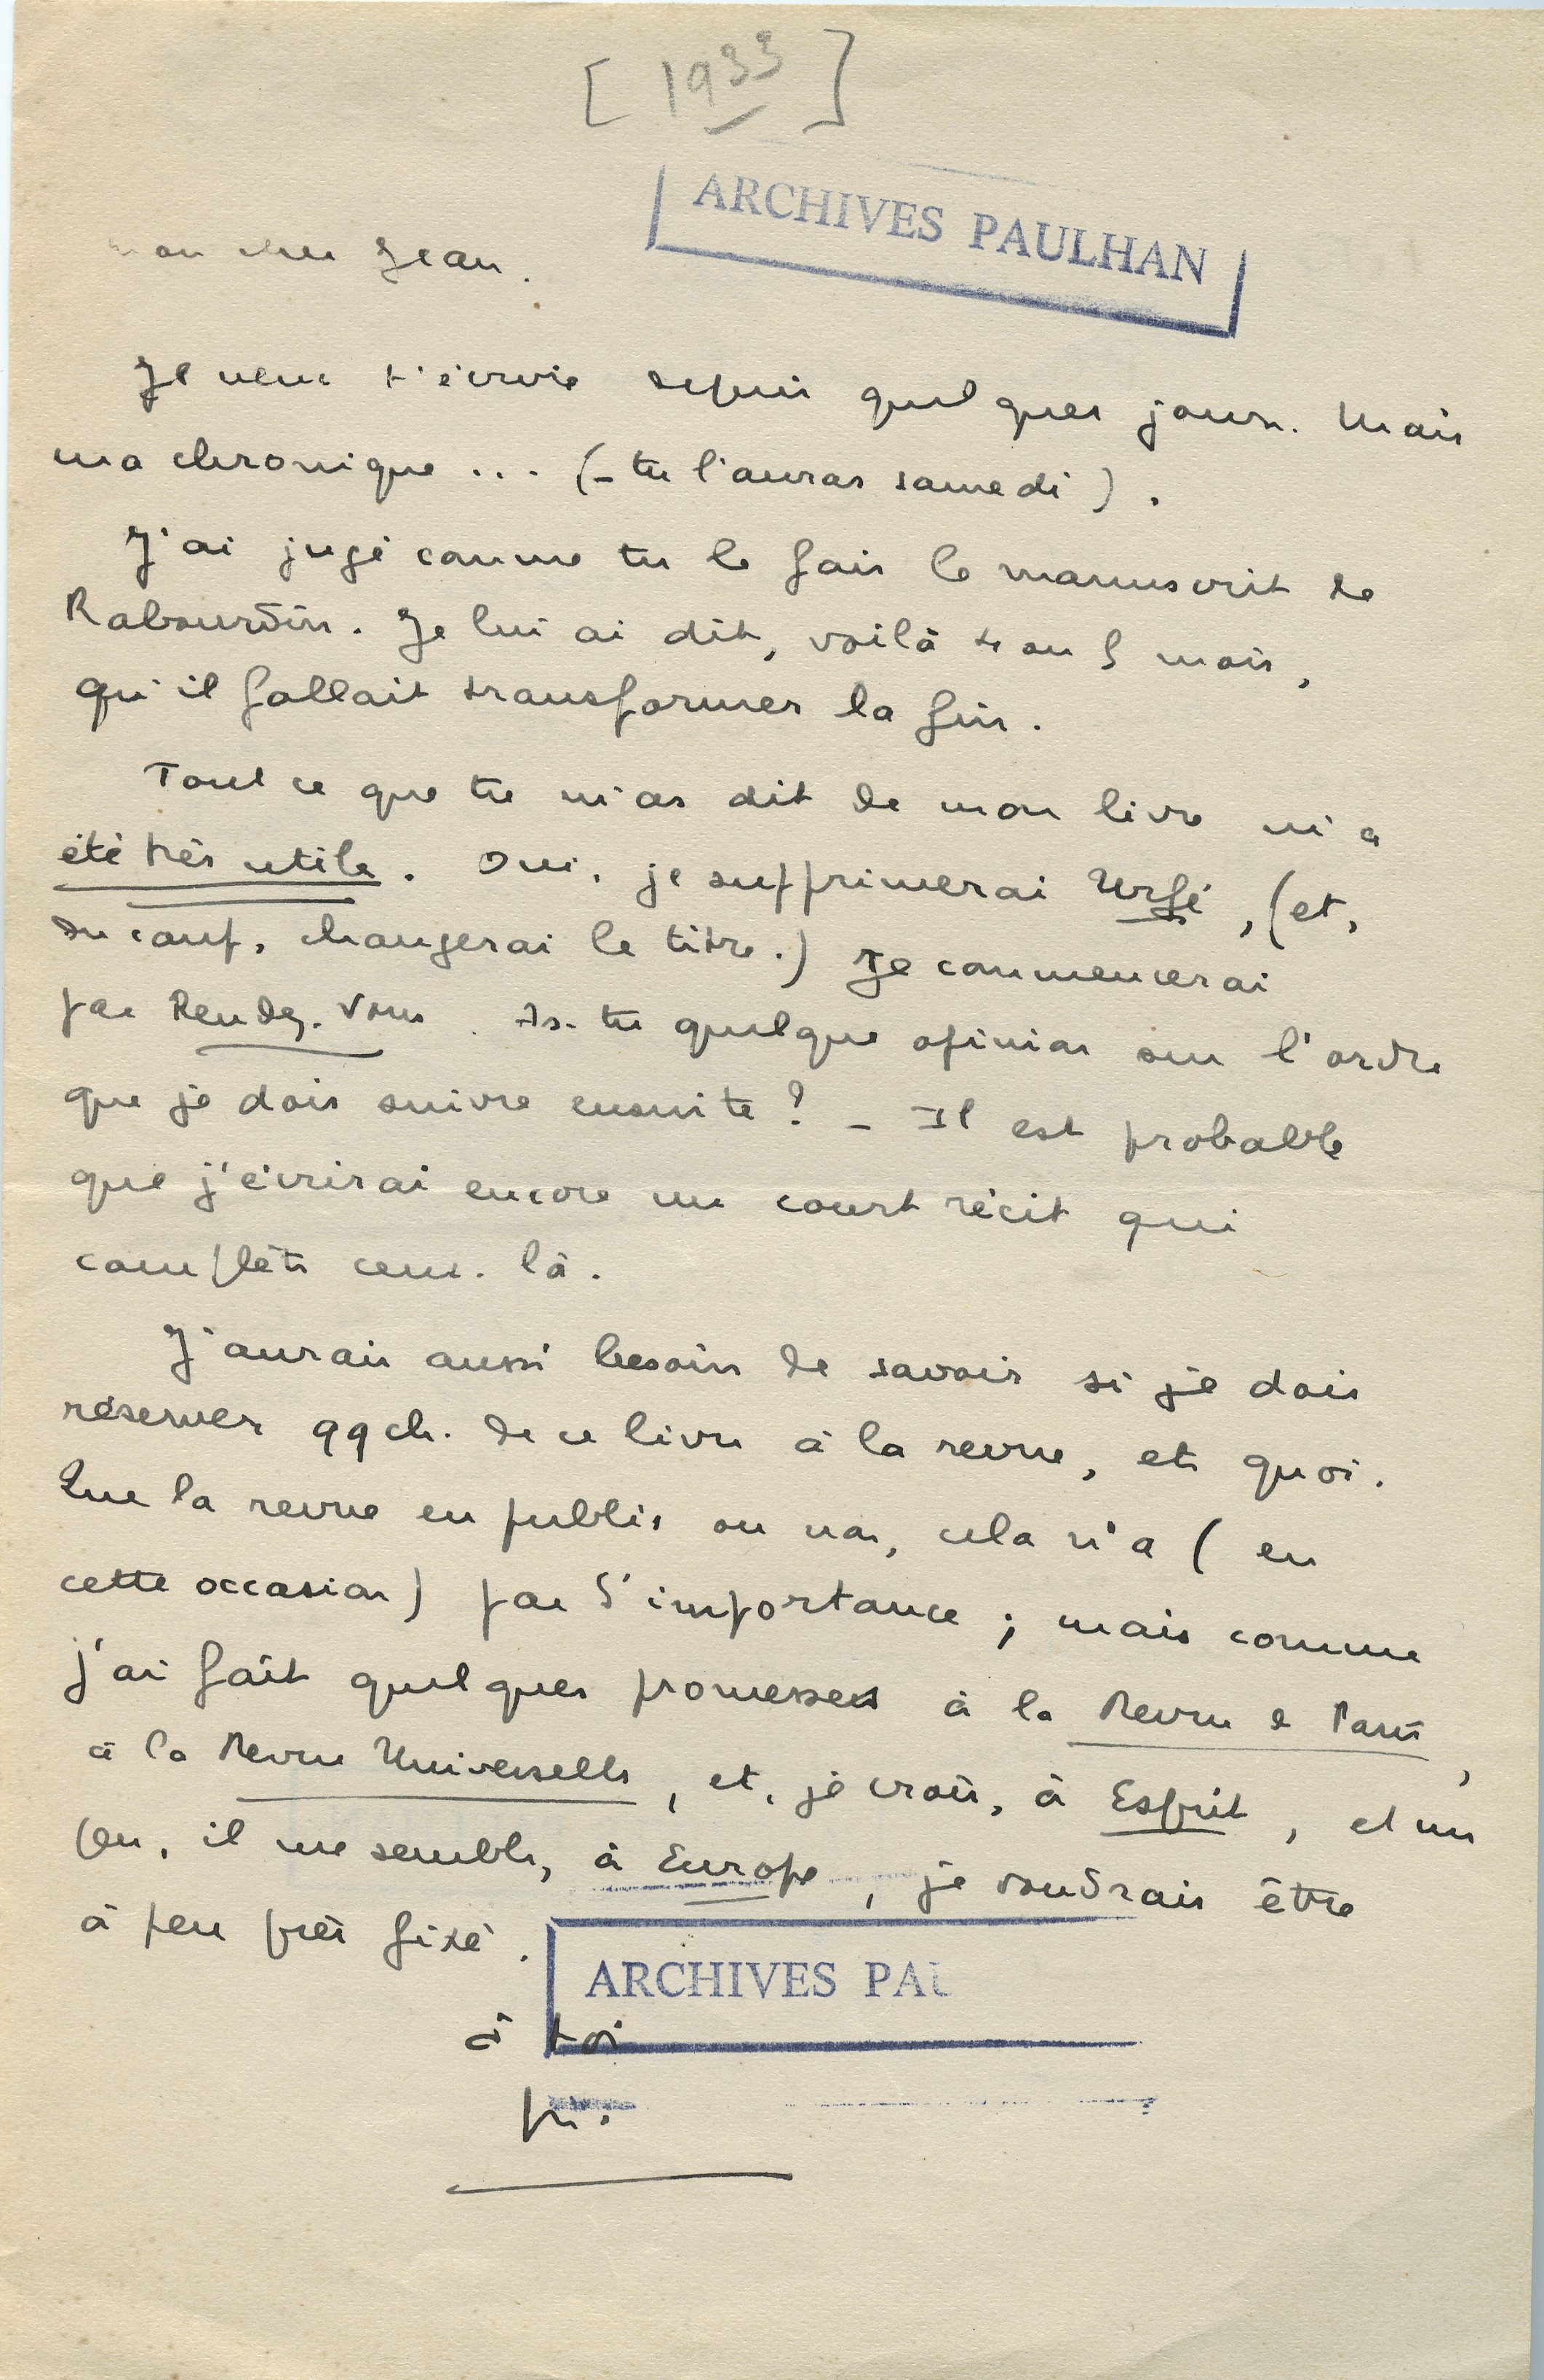 [1933]
ARCHIVES PAULHAN
mon cher Jean.
Je veux t'écrire depuis quelques jours. Mais
ma chronique ... (- tu l'auras samedi).
J'ai jugé comme tu le fais le manuscrit de
Rabourdin. Je lui ai dit, voilà 4 ou 5 mois,
qu'il fallait transformer la fin.
Tout ce que tu m'as dit de mon livre m'a
été très utile. Oui, je supprimerai Urfé, (et,
du coup, changerai le titre.) Je commencerai
par Rendez-vous. As-tu quelque opinion sur l'ordre
que je dois suivre ensuite? - Il est probable
que j'écrirai encore un court récit qui
complète ceux-là.
J'aurais aussi besoin de savoir si je dois
réserver qqch. de ce livre à la revue, et quoi.
Que la revue en publie ou non, cela n'a (en
cette occasion) pas d'importance; mais comme
j'ai fait quelques promesses à la Revue de Paris,
à la Revue Universelle, et, je crois, à Esprit, et un
peu, il me semble, à Europe, je voudrais être
à peu près fixé.
ARCHIVES PAU
à toi